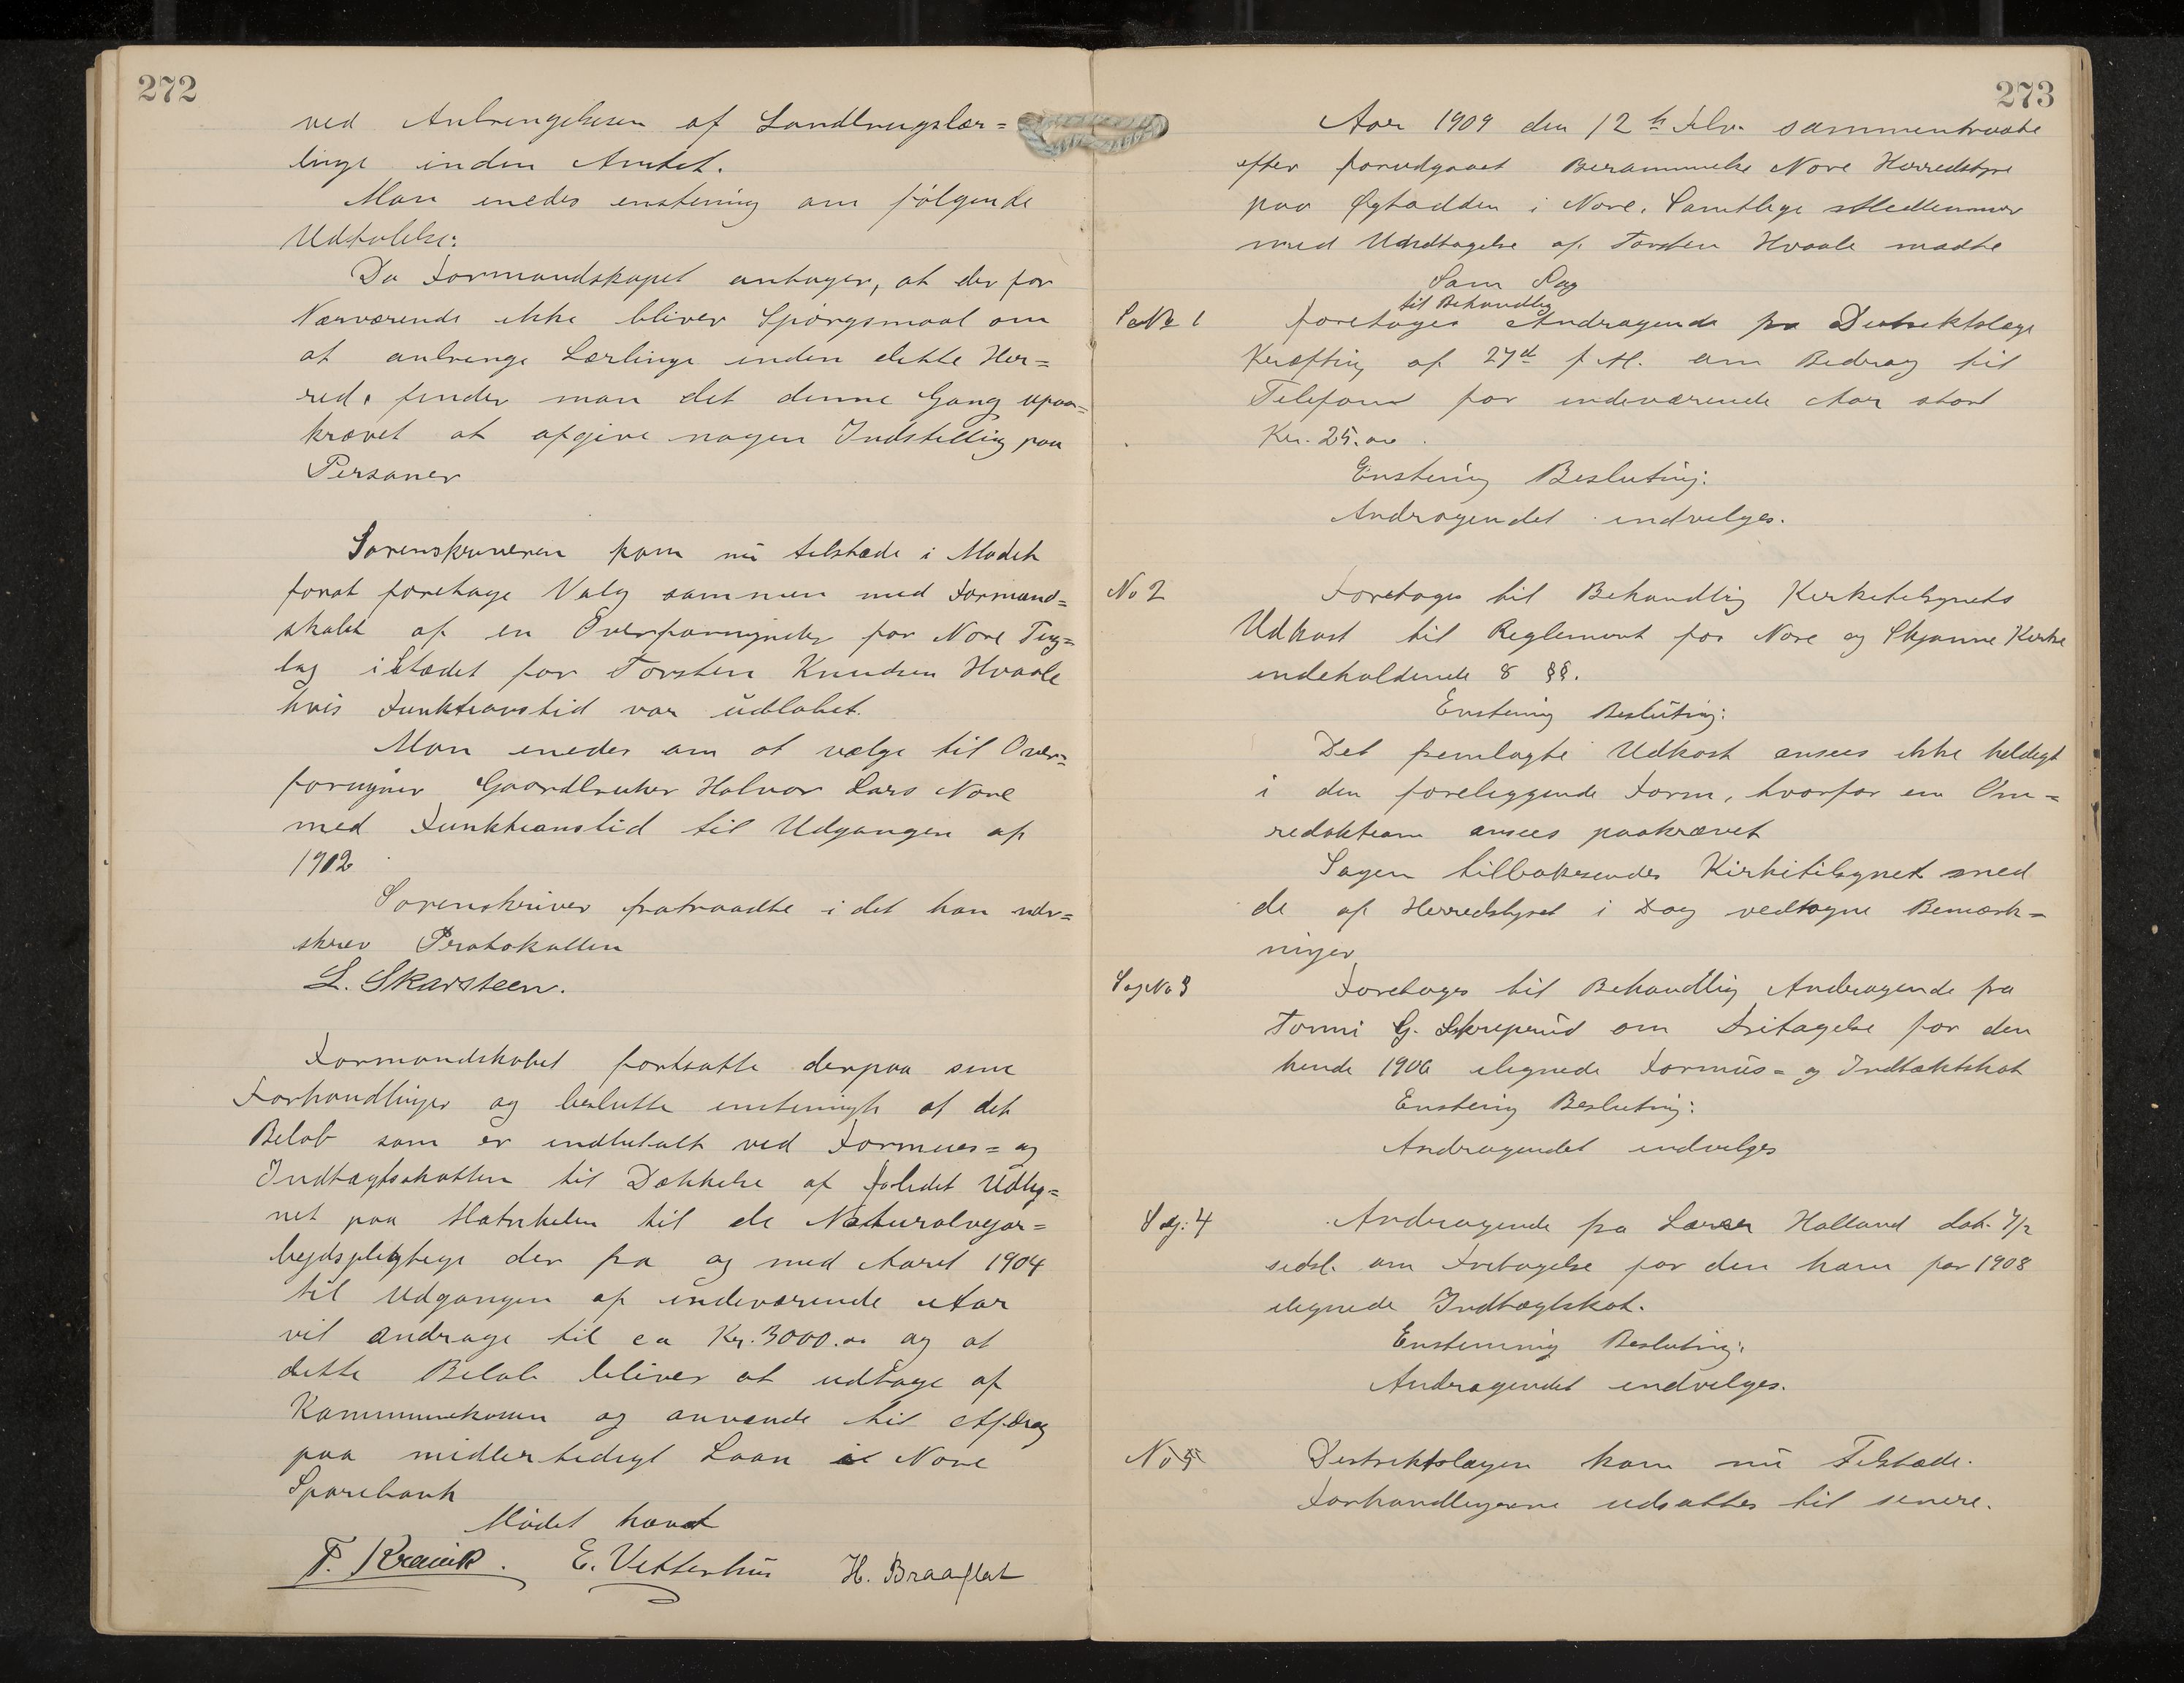 272
ved Anbringelsen af Landbrugslær=
linge inden Amtet.
Man enedes enstemig om følgende
Udtalelse:
Da Formandskapet antager, at der for
Nærværende ikke bliver Spørgsmaal om
at anbringe Lærlinge inden dette Her=
red, finder man det denne Gang upaa=
krævet at afgive nogen Indstilling paa
Personer
Sorenskriveren kom nu tilstæde i Mødet
forat foretage Valg sammen med Formand=
skabet af en Overformynder for Nore Ting=
lag istædet for Torsten Knudsen Hvaale
hvis Funktionstid var udløbet.
Man enedes om at vælge til Over=
formynder Gaardbruker Halvor Lars Nore
med Funktionstid til Udgangen af
1912
Sorenskriver fratraadte i det han under=
skrev Protokollen
L. Skarsteen.
Formandskabet fortsatte derpaa sine
Forhandlinger og beslutte enstemigt at det
Beløb som er indbetalt ved Formues= og
Indtægtsskatten til Dækkelse af Udlig=
net paa Matrikelen til de Naturalvejar=
bejdspligtige der fra og med Aaret 1904
til Udgangen af indeværende Aar
vil andrage til ca Kr. 3000.00 og at
dette Beløb bliver at udtage af
Kommunekassen og anvende til Afdrag
paa midlertidigt Laan i Nore
Sparebank
Mødet hævet
T. E. Vetterhus H. Braaflat
273
Aar 1909 den 12te Febr. sammentraadte
efter forudgaaet Berammelse Nore Herredstyre
paa Øygardden i Nore. Samtlige Medlemmer
med Undtagelse af Torsten Hvaale mødte
Som Sag
til Behandling
Sag No 1 foretages Andragende fra Distriktslæge
Kræfting af 27de f.M. om Bidrag til
Telefond for indeværende Aar stort
Kr. 25.00.
Enstemig Beslutning:
Andragendet indvilges.
No 2 Foretages til Behandling Kirketilsynets
Udkast til Reglement for Nore og Skjønne Kirke
indeholdende 8 §§.
Enstemig Beslutning:
Det fremlagte Udkast ansees ikke heldigt
i den foreliggende Form, hvorfor en Om=
redaktion ansees paakrævet
Sagen tilbakesendes Kirketilsynet med
de af Herredstyret i Dag vedtagne Bemærk=
ninger
Sag No 3 Foretages til Behandling Andragende fra
Tonni G. Skreperud om Fritagelse for den
hende 1906 ilignede Formus= og Indtæktskat
Enstemig Beslutning:
Andragendet indvilges
Sag: 4 Andragende fra Lærer Halland dat. 7/2
sidstl. om Fritagelse for den ham for 1908
ilignede Indtægtskat.
Enstemmig Beslutning:
Andragendet indvilges.
No 5 Distriktslægen kom nu Tilstæde.
Forhandlingerne udsattes til senere.